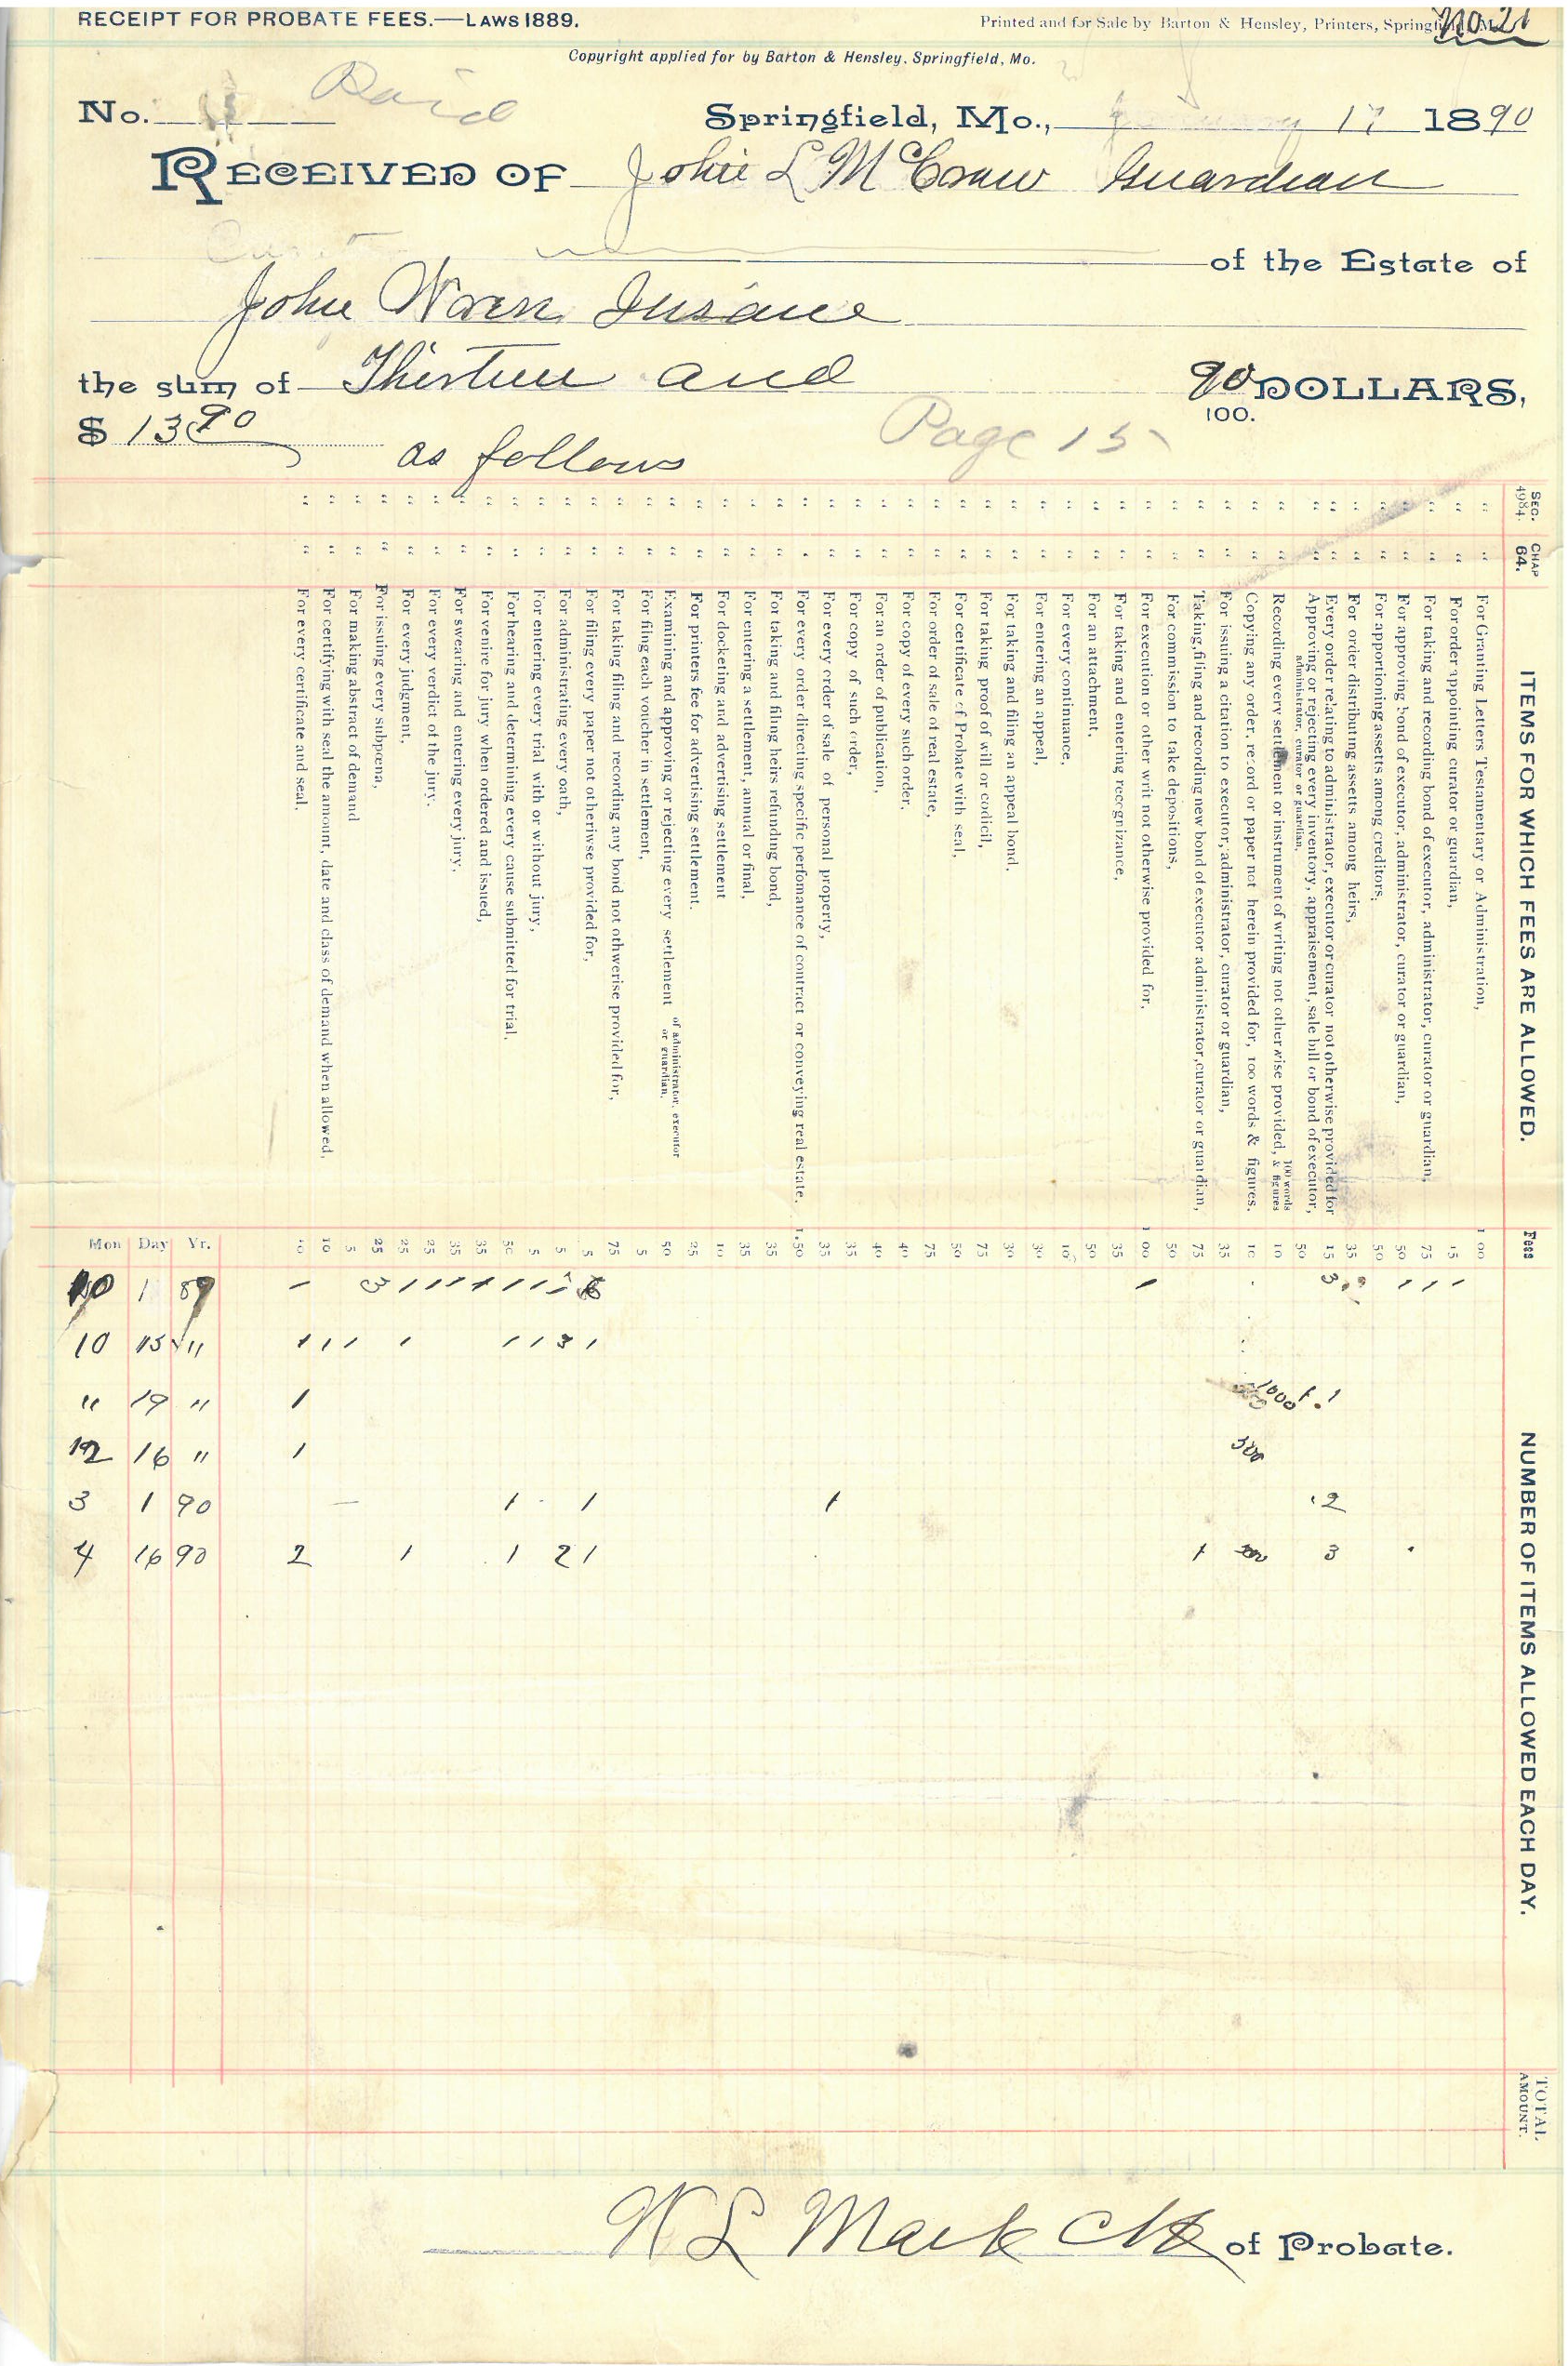 RECEIPT FOR PROBATE FEES.—LAWS 1889.
Printed and for Sale by Barton & Hensley, Printers, Springfield, Mo.
No 21
Copyright applied for by Barton & Hensley, Springfield, Mo.
No. Paid
Springfield, Mo., 17 1890
RECEIVED OF John L McCraw Guardian
of the Estate of
John Insane
the sum of Thirteen and 90/100. DOLLARS,
$ 13 90 as follows
Page 15
SEC. 4984. CHAP 64. ITEMS FOR WHICH FEES ARE ALLOWED. Fees NUMBER OF ITEMS ALLOWED EACH DAY. TOTAL AMOUNT.
" " For Granting Letters Testamentary or Administration, 1 00
" " For order appointing curator or guardian, 15
" " For taking and recording bond of executor, administrator, curator or guardian, 75
" " For approving bond of executor, administrator, curator or guardian, 50
" " For apportioning assets among creditors, 50
" " For order distributing assetts among heirs, 35
" " Every order relating to administrator, executor or curator not otherwise provided for 15
" " Approving or rejecting every inventory, appraisement, sale bill or bond of executor, administrator, curator or guardian, 50
" " Recording every settlement or instrument of writing not otherwise provided, 100 words & figures 10
" " Copying any order, record or paper not herein provided for, 100 words & figures. 10
" " For issuing a citation to executor, administrator, curator or guardian, 35
" " Taking, filing and recording new bond of executor administrator, curator or guardian, 75
" " For commission to take depositions, 50
" " For execution or other writ not otherwise provided for, 1 00
" " For taking and entering recognizance, 35
" " For an attachment, 50
" " For every continuance, 10
" " For entering an appeal, 30
" " For taking and filing an appeal bond, 30
" " For taking proof of will or codicil, 75
" " For certificate of Probate with seal, 50
" " For order of sale of real estate, 75
" " For copy of every such order, 40
" " For an order of publication, 40
" " For copy of such order, 35
" " For every order of sale of personal property, 35
" " For every order directing specific perfomance of contract or conveying real estate, 1.50
" " For taking and filing heirs refunding bond, 35
" " For entering a settlement, annual or final, 35
" " For docketing and advertising settlement 10
" " For printers fee for advertising settlement. 25
" " Examining and approving or rejecting every settlement of administrator, executor or guardian, 50
" " For filing each voucher in settlement, 5
" " For taking filing and recording any bond not othwerise provided for, 75
" " For filing every paper not otheriwse provided for, 5
" " For administrating every oath, 5
" " For entering every trial with or without jury, 5
" " For hearing and determining every cause submitted for trial, 50
" " For venire for jury when ordered and issued, 35
" " For swearing and entering every jury, 35
" " For every verdict of the jury. 25
" " For every judgment, 25
" " For issuing every subpœna, 25
" " For making abstract of demand 5
" " For certifying with seal the amount, date and class of demand when allowed, 10
" " For every certificate and seal, 10
Mon Day Yr.
10 1 89 3 3
10 15 " 3
" 19 " 1 1000
12 16 " 1 300
3 1 90 1 1 1 2
4 16 90 2 1 1 2 1 1 3
W L Mack Clk of Probate.